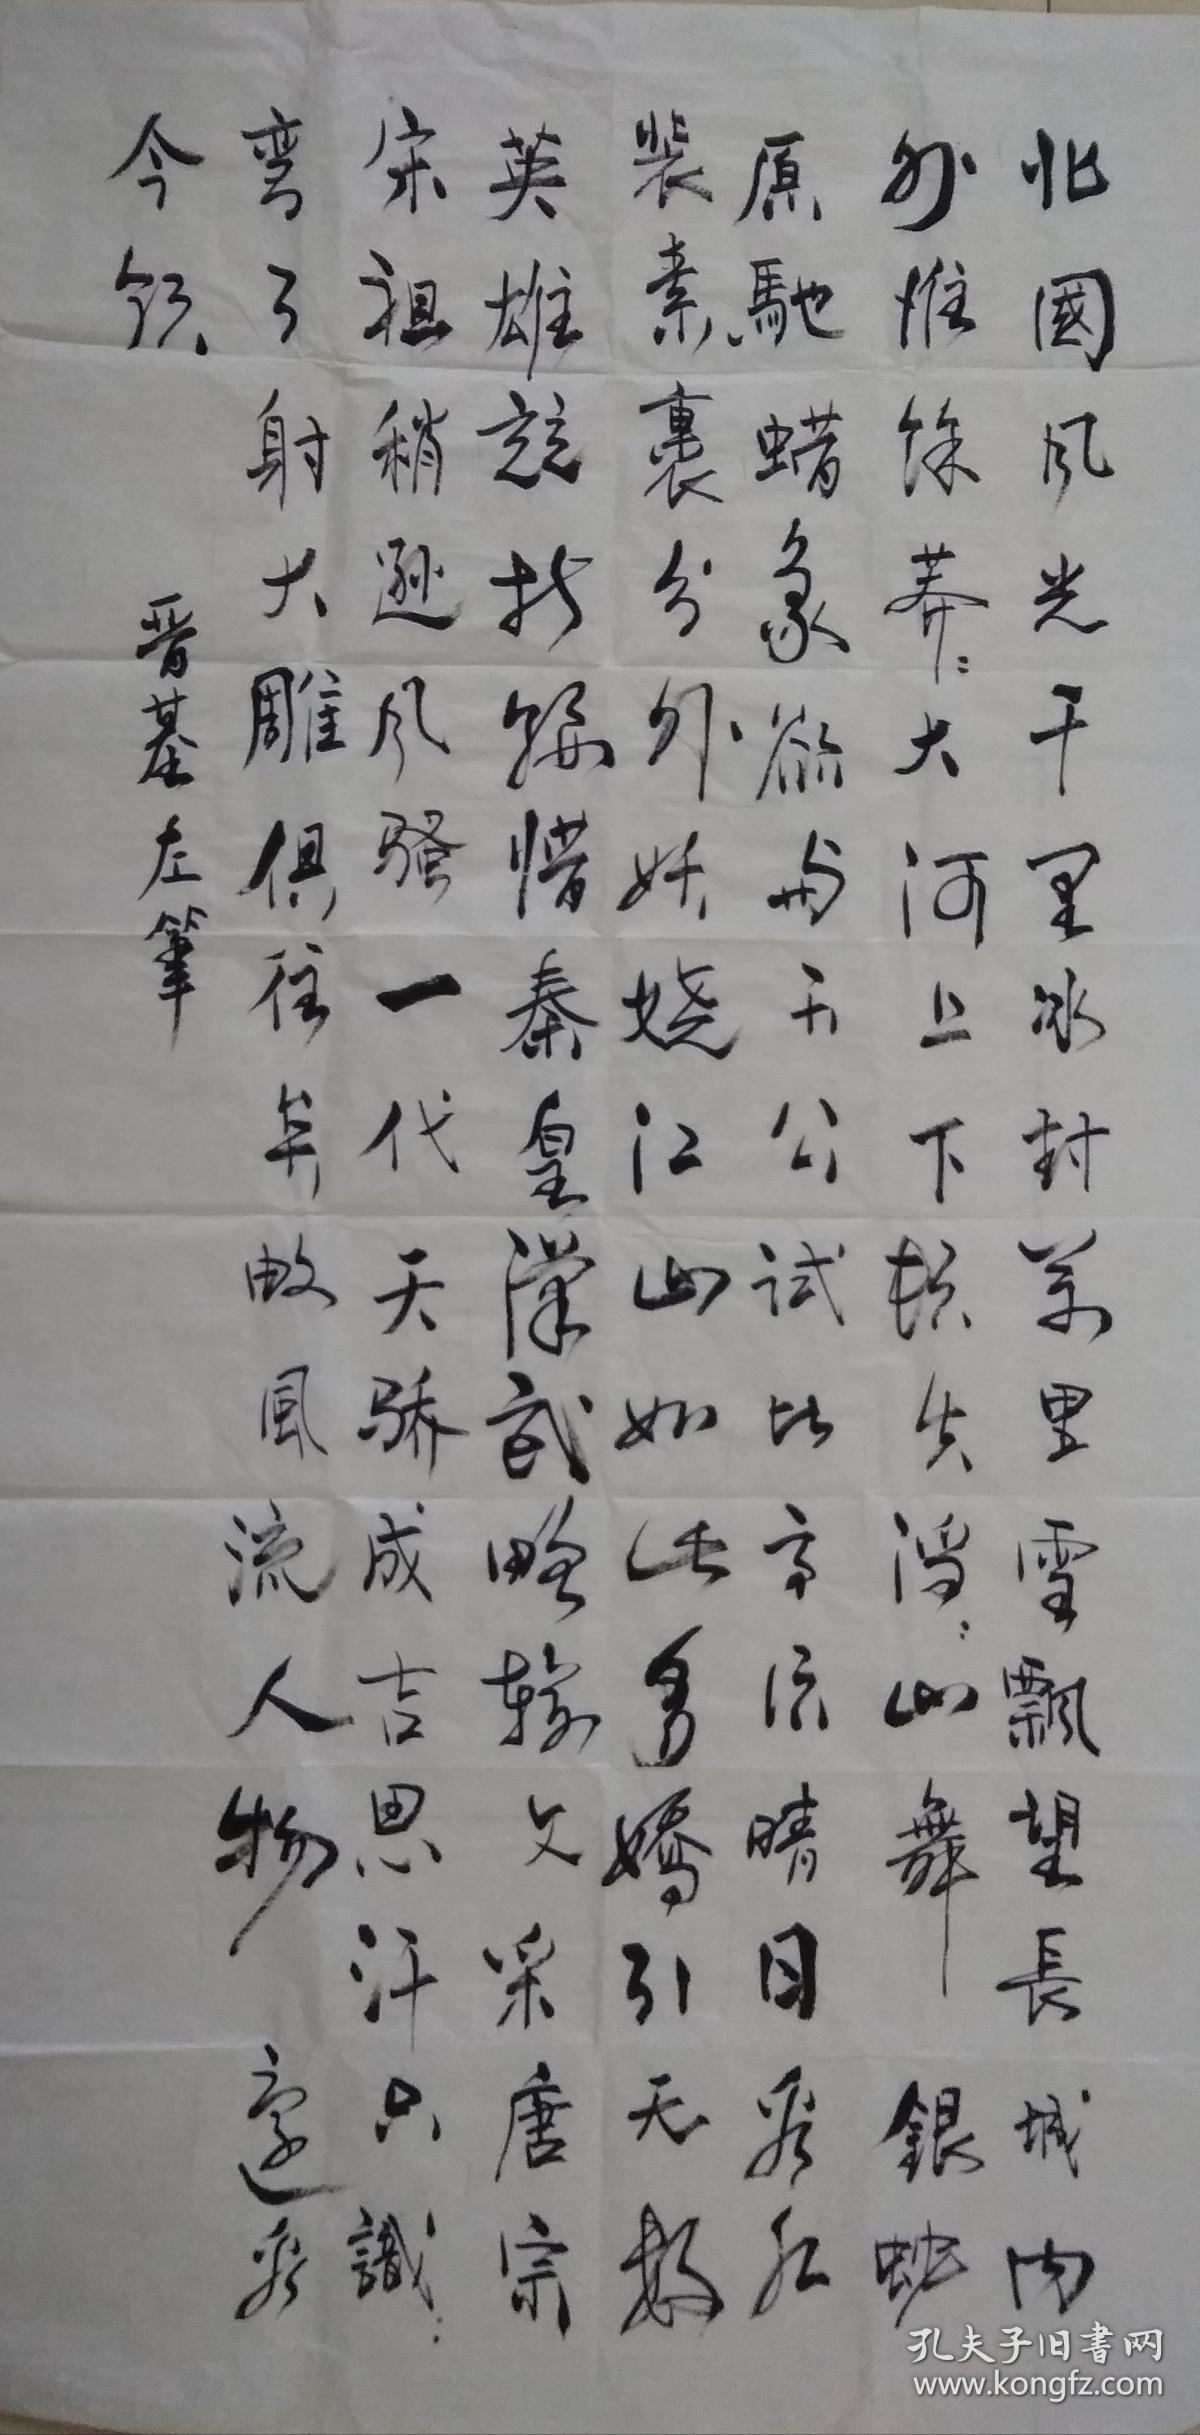 北國风光千里冰封萬里雪飄望長城内
外惟馀莽:大河上下頓失滔:山舞銀蛇
原馳蜡象欲与天公試比高须晴日看红
裝素裹分外妖娆江山如此多嬌引无数
英雄競折腰惜秦皇漢武略输文采唐宗
宋祖稍遜风骚一代天骄成吉思汗只識:
弯弓射大雕俱往矣数風流人物還看
今朝
晋基左筆
孔夫子旧书网
www.kongfz.com